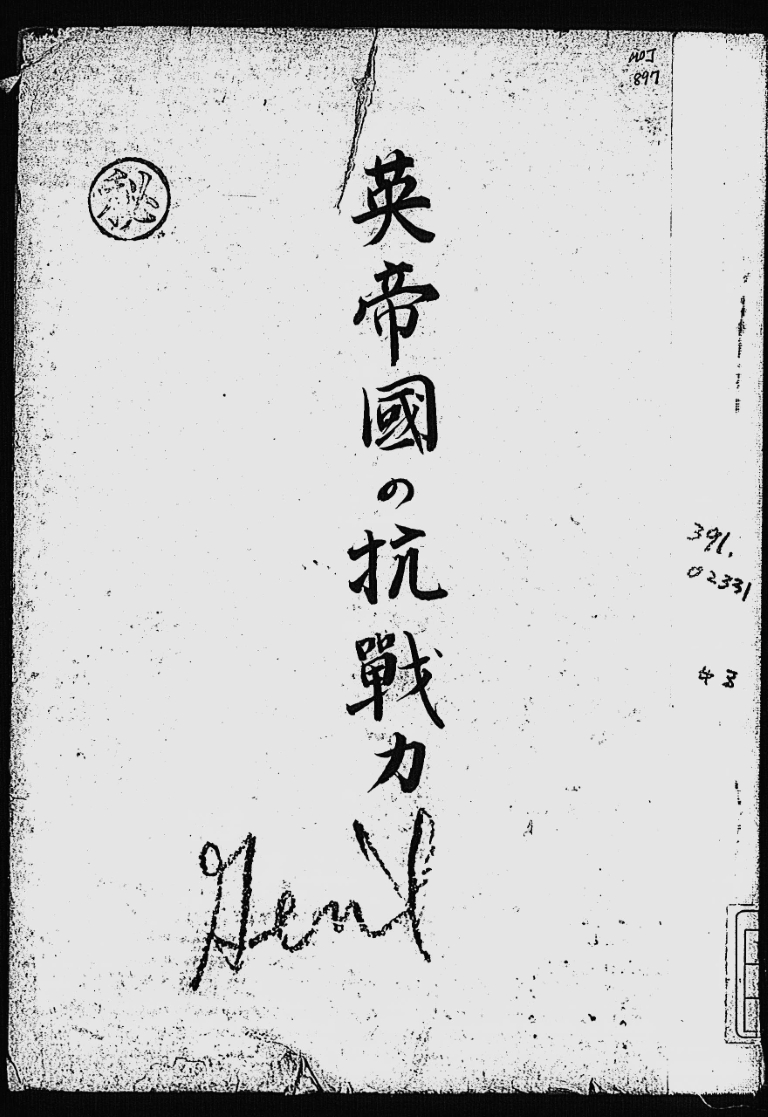 MOJ
897
秘
英帝國の抗戰力
391.
02331
Gen'l